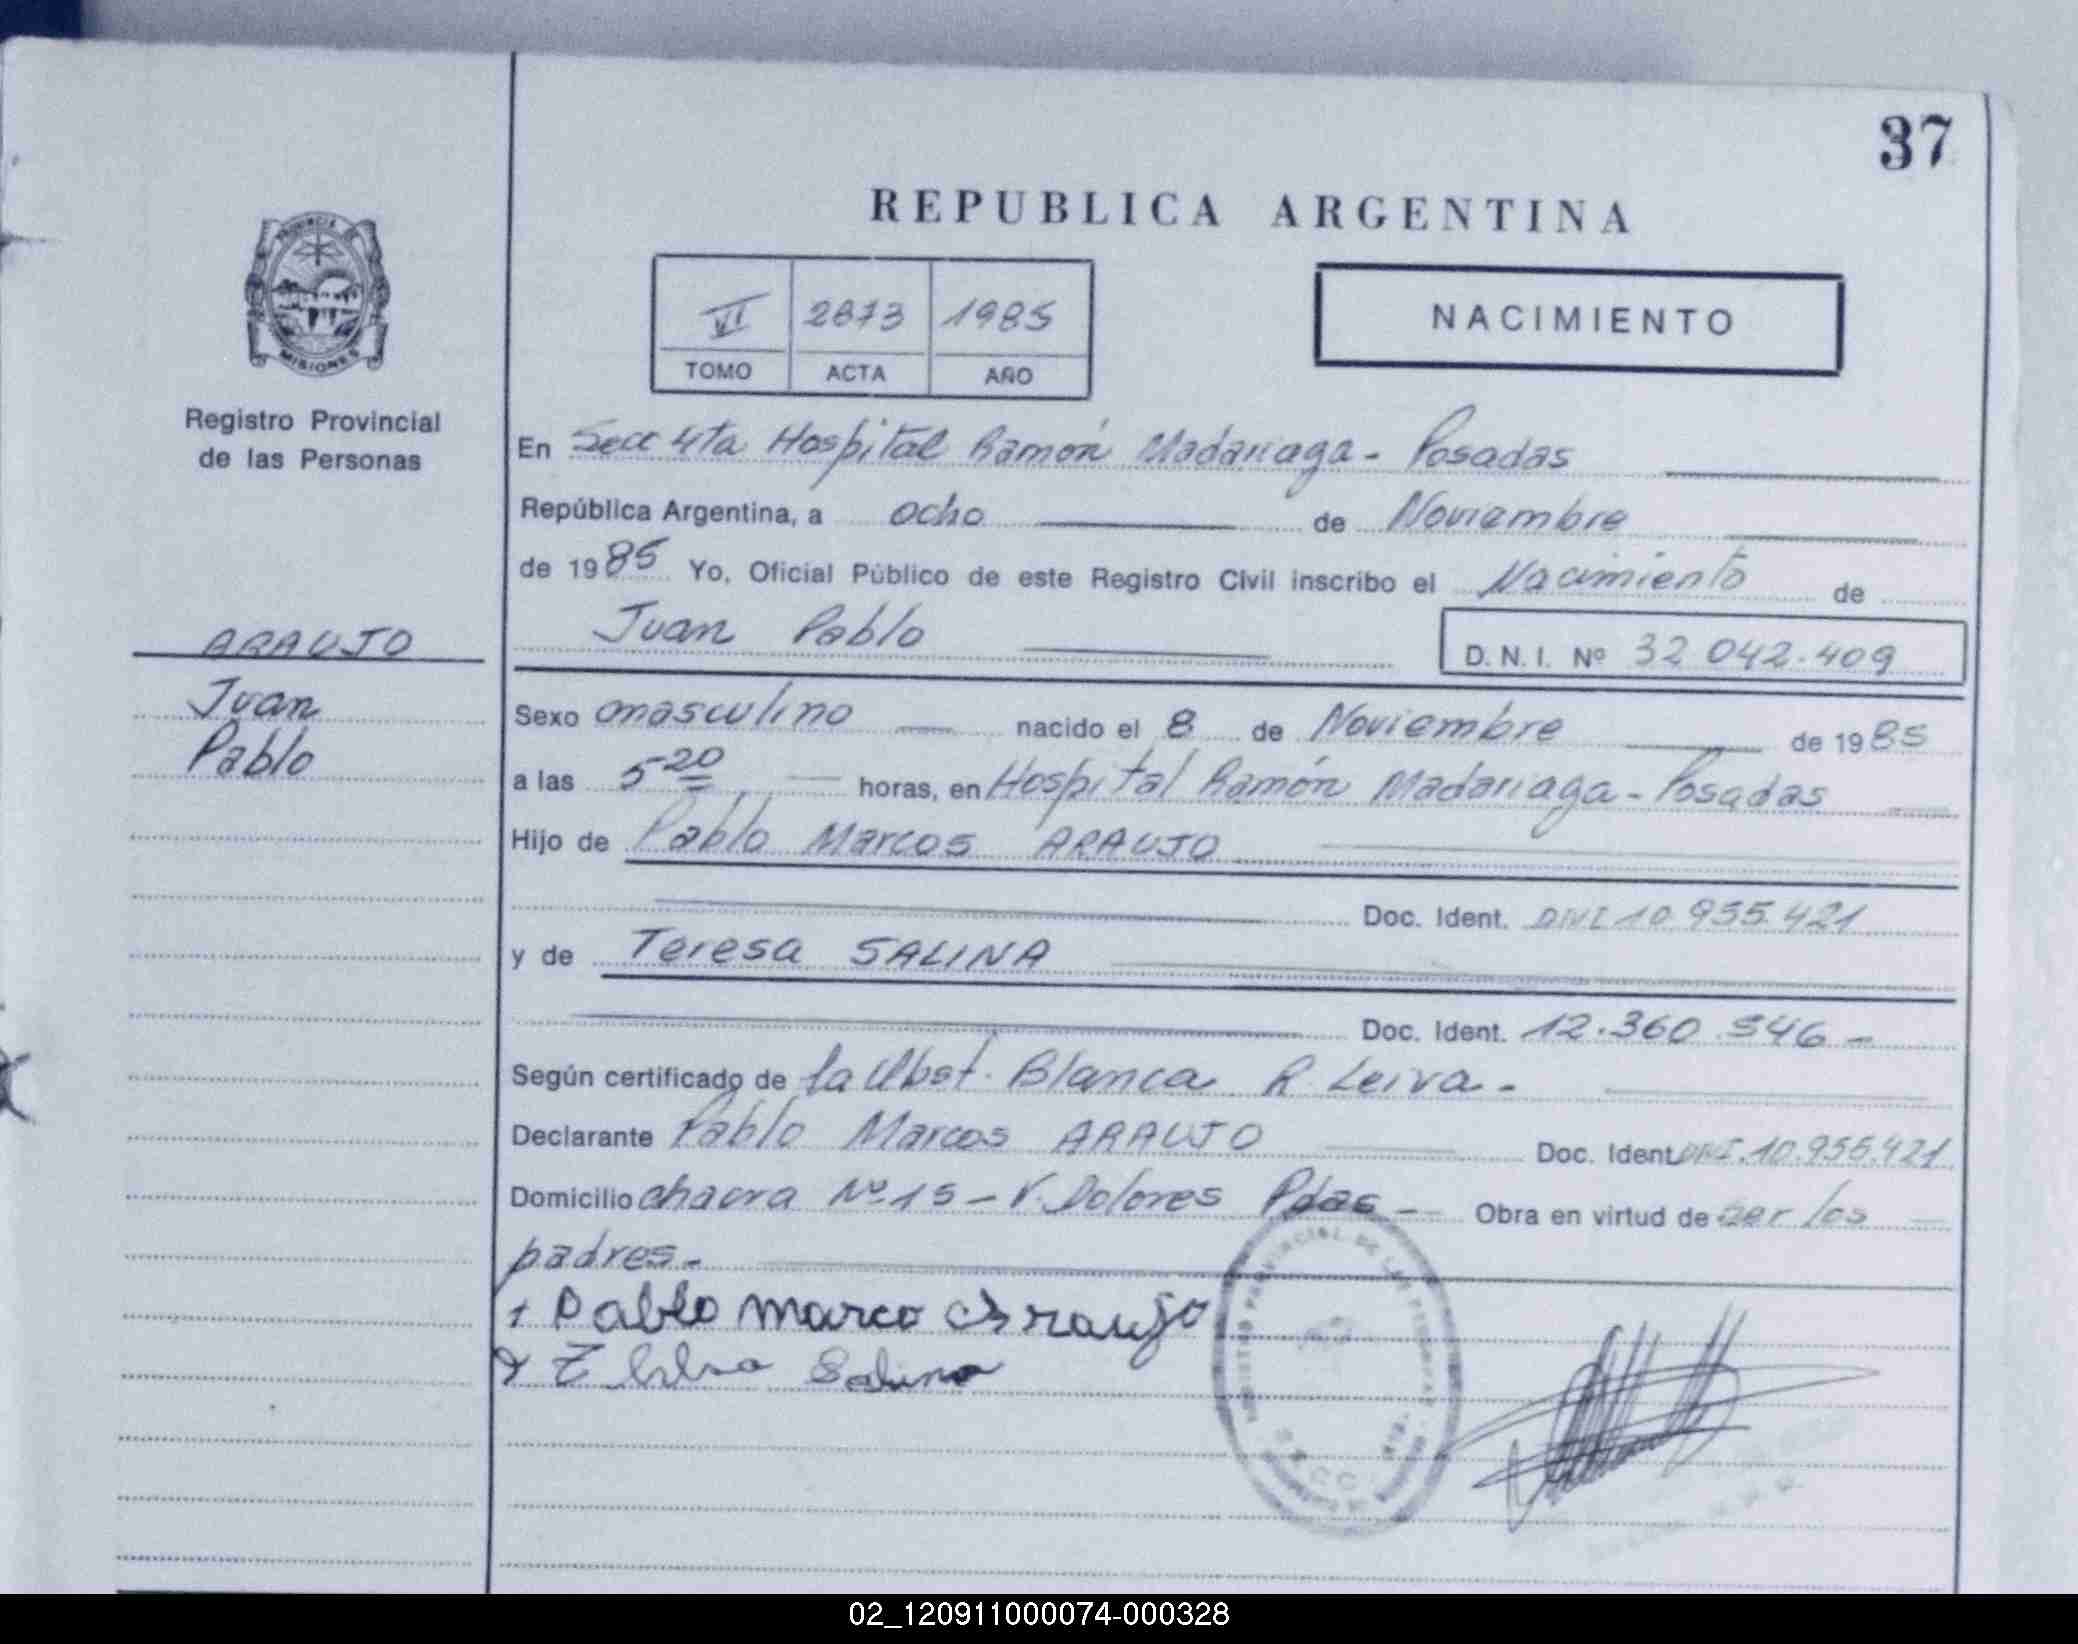 37
REPUBLICA ARGENTINA
PROVINCIA DE
MISIONES
Registro Provincial
de las Personas
VI 2873 1985
TOMO ACTA AÑO
NACIMIENTO
En Secc 4ta Hospital Ramón Madariaga - Posadas
República Argentina, a ocho de Noviembre
de 1985 Yo, Oficial Público de este Registro Civil inscribo el Nacimiento de
Juan Pablo D.N.I. Nº 32 042.409
ARAUJO
Juan
Pablo
Sexo masculino nacido el 8 de Noviembre de 1985
a las 5 20 horas, en Hospital Ramón Madariaga - Posadas
Hijo de Pablo Marcos ARAUJO
Doc. Ident. DNI 10.955.421
y de Teresa SALINA
Doc. Ident. 12.360.546 -
Según certificado de la Obst. Blanca R. Leiva -
Declarante Pablo Marcos ARAUJO Doc. Ident. DNI. 10.955.421
Domicilio chacra Nº 15 - V. Dolores Pdas - Obra en virtud de ser los
padres -
Pablo marco Araujo
Salina
REGISTRO PROVINCIAL DE LAS PERSONAS
SECC. 4ta.
02_120911000074-000328